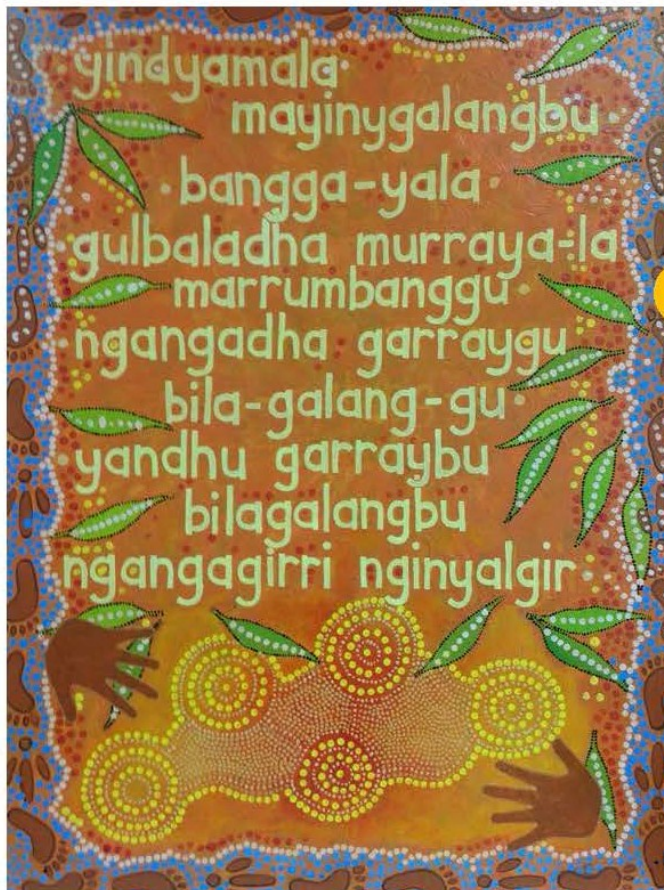 yindyamala
mayinygalangbu
bangga-yala
gulbaladha murraya-la
marrumbanggu
ngangadha garraygu
bila-galang-gu
yandhu garraybu
bilagalangbu
ngangagirri nginyalgir